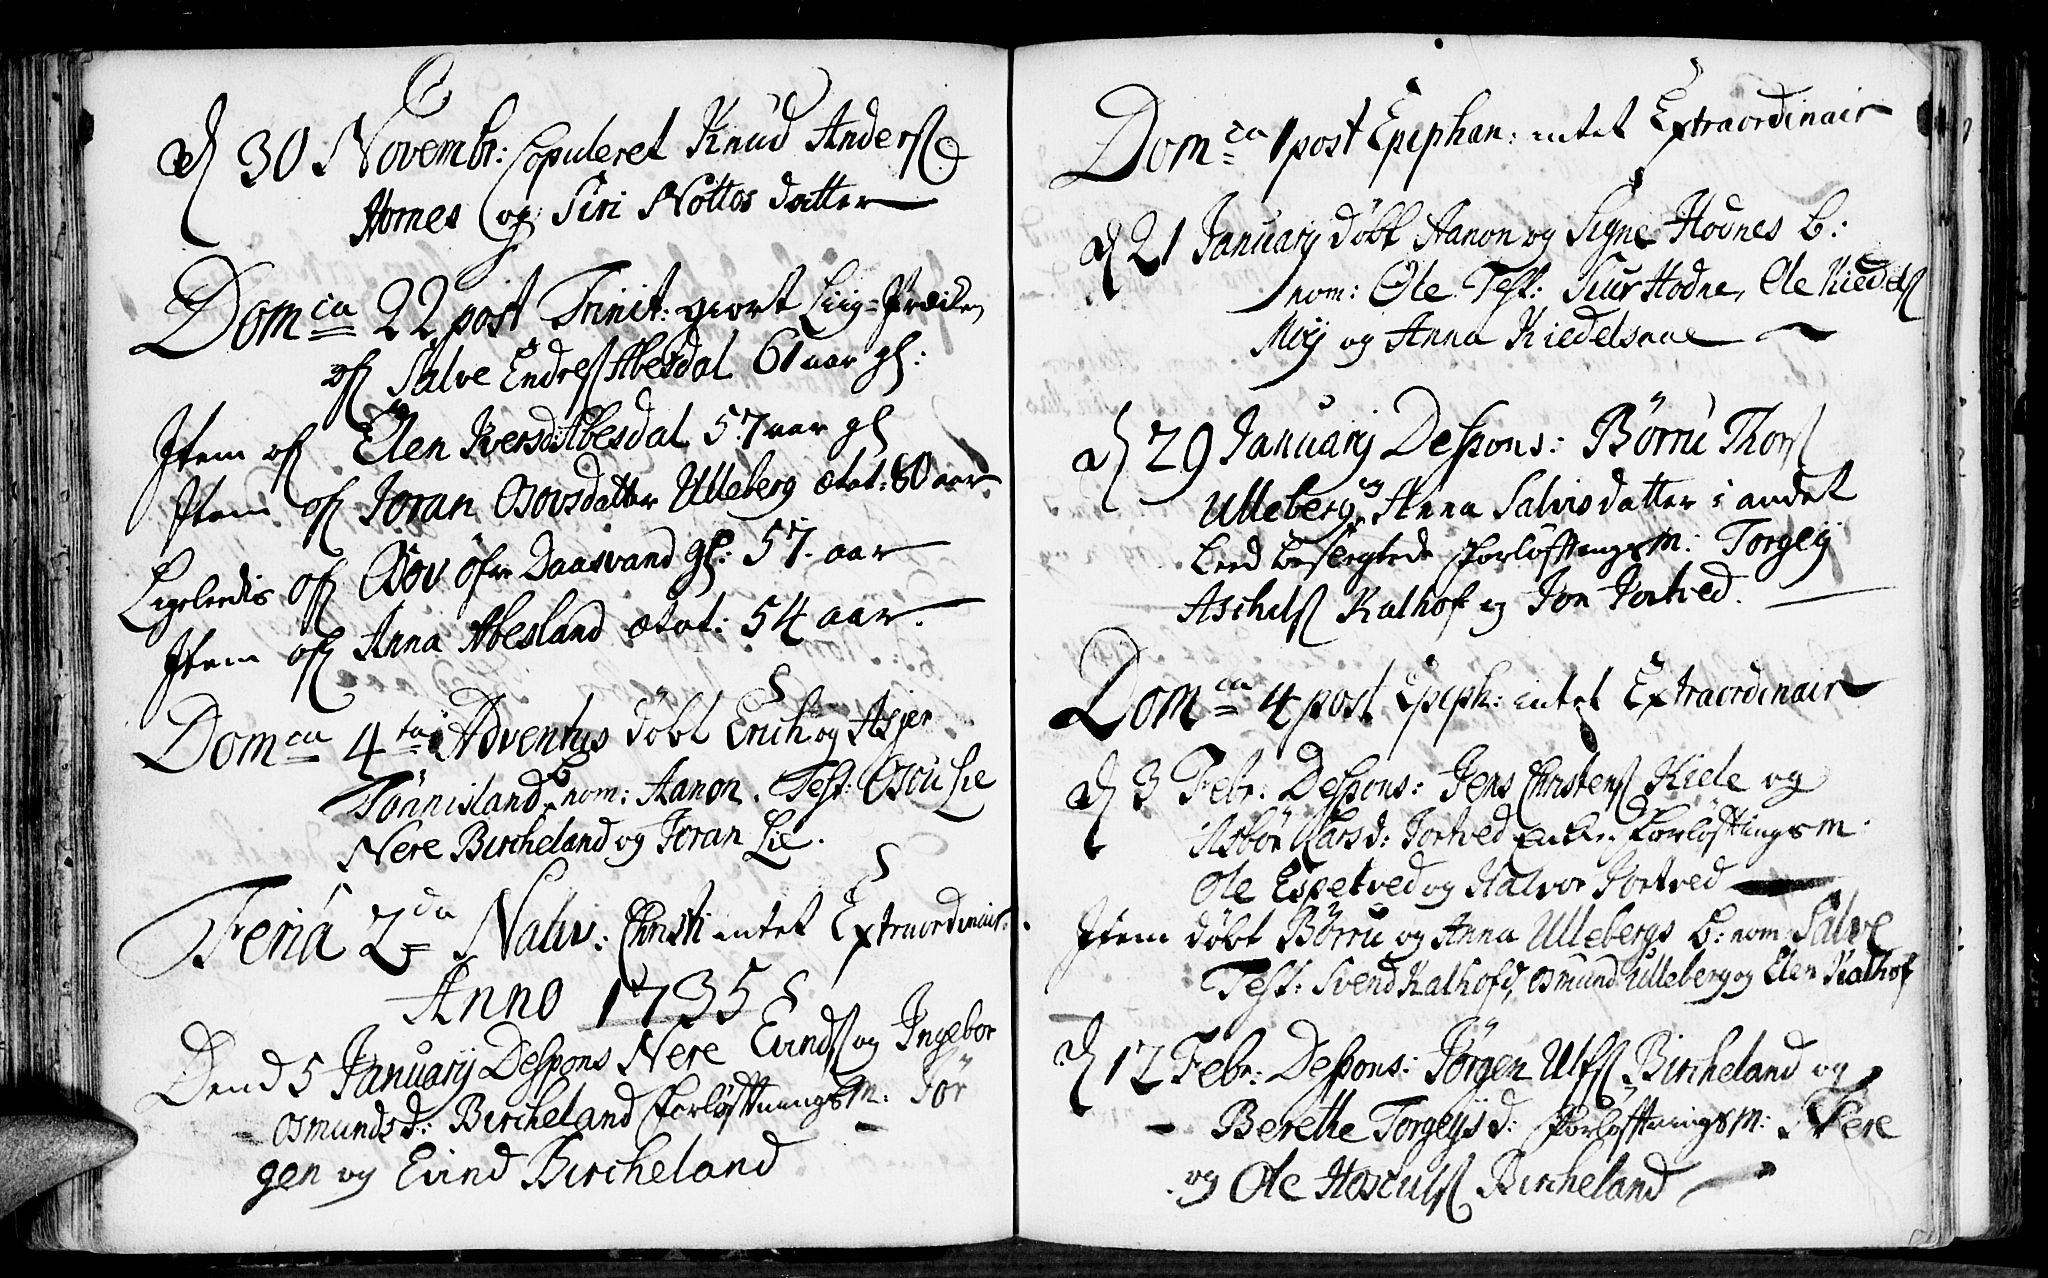 d 30 Novembr: Copuleret Knud Anders:
Homes og Siri Nottos datter
Dom ca 22 post Trinit: giort Liig-Prædiken
ofr Salve Endres Abesdal 61 aar gl:
Item ofr Elen Iversd: Abesdal 57 aar gl
Item ofr Joran Osovsdatter Ulleberg ætat: 80 aar
Ligeledis ofr Osov öfre Daasvand gl: 57. aar
Item ofr Anna Abesland ætat: 54 aar.
Dom ca 4 ta Adventus döbt Erich og Asjer
Tönnisland b: nom: Aanon. Test: Osou Lie
Nere Bircheland og Joran Lie.
Feria 2 da Nativ: Christi intet Extraordinair:
Anno 1735
Dend 5 Januarij Despons Nere Evinds og Ingebor
Osmundsd: Bircheland Forlöftningsm: Jör
gen og Evind Bircheland
Dom ca 1 post Epiphan: intet Extraordinair
d 21 Januarij döbt Aanon og Signe Hodnes b:
nom: Ole Test: Siur Hodne, Ole Kiedels
Moij og Anna Kiedelsaae
d 29 Januarij Despons: Börru Thors
Ulleberg og Anna Salvisdatter i andet
Leed beslegtede Forlöftningsm: Torgeij
Aschels Kalhof og Jon Jortved.
Dom ca 4 post Epiph: intet Extraordinair
d 3 Febr: Despons: Jens Christens Kiele og
Asbör Larsd: Jortved Enke. Forlöftingsm:
Ole Espetved og Halvor Jortved
Item döbt Börru og Anna Ullebergs b: nom: Salve
Test: Svend Kalhofd, Osmund Ulleberg og Elen Kalhof
d 12 Febr: Despons: Jörgen Ulfs Bircheland og
Berethe Torgeijsd: Forlöftningsm: Nere
og Ole Hosculs Bircheland